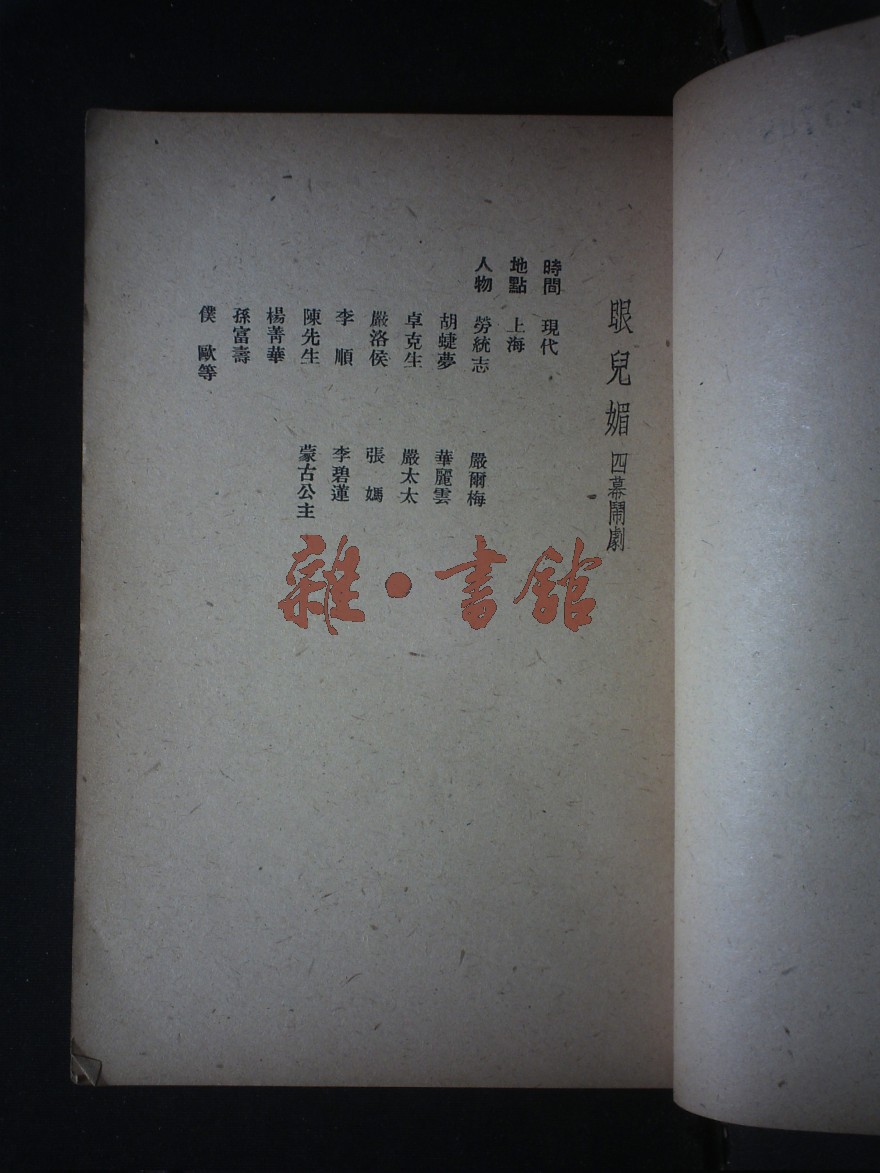 眼兒媚 四幕鬧劇
時間 現代
地點 上海
人物 勞統志 嚴爾梅
胡蜨夢 華麗雲
卓克生 嚴太太
嚴洛侯 張媽
李順 李碧蓮
陳先生 蒙古公主
楊菁華
孫富壽
僕歐等
雜·書館